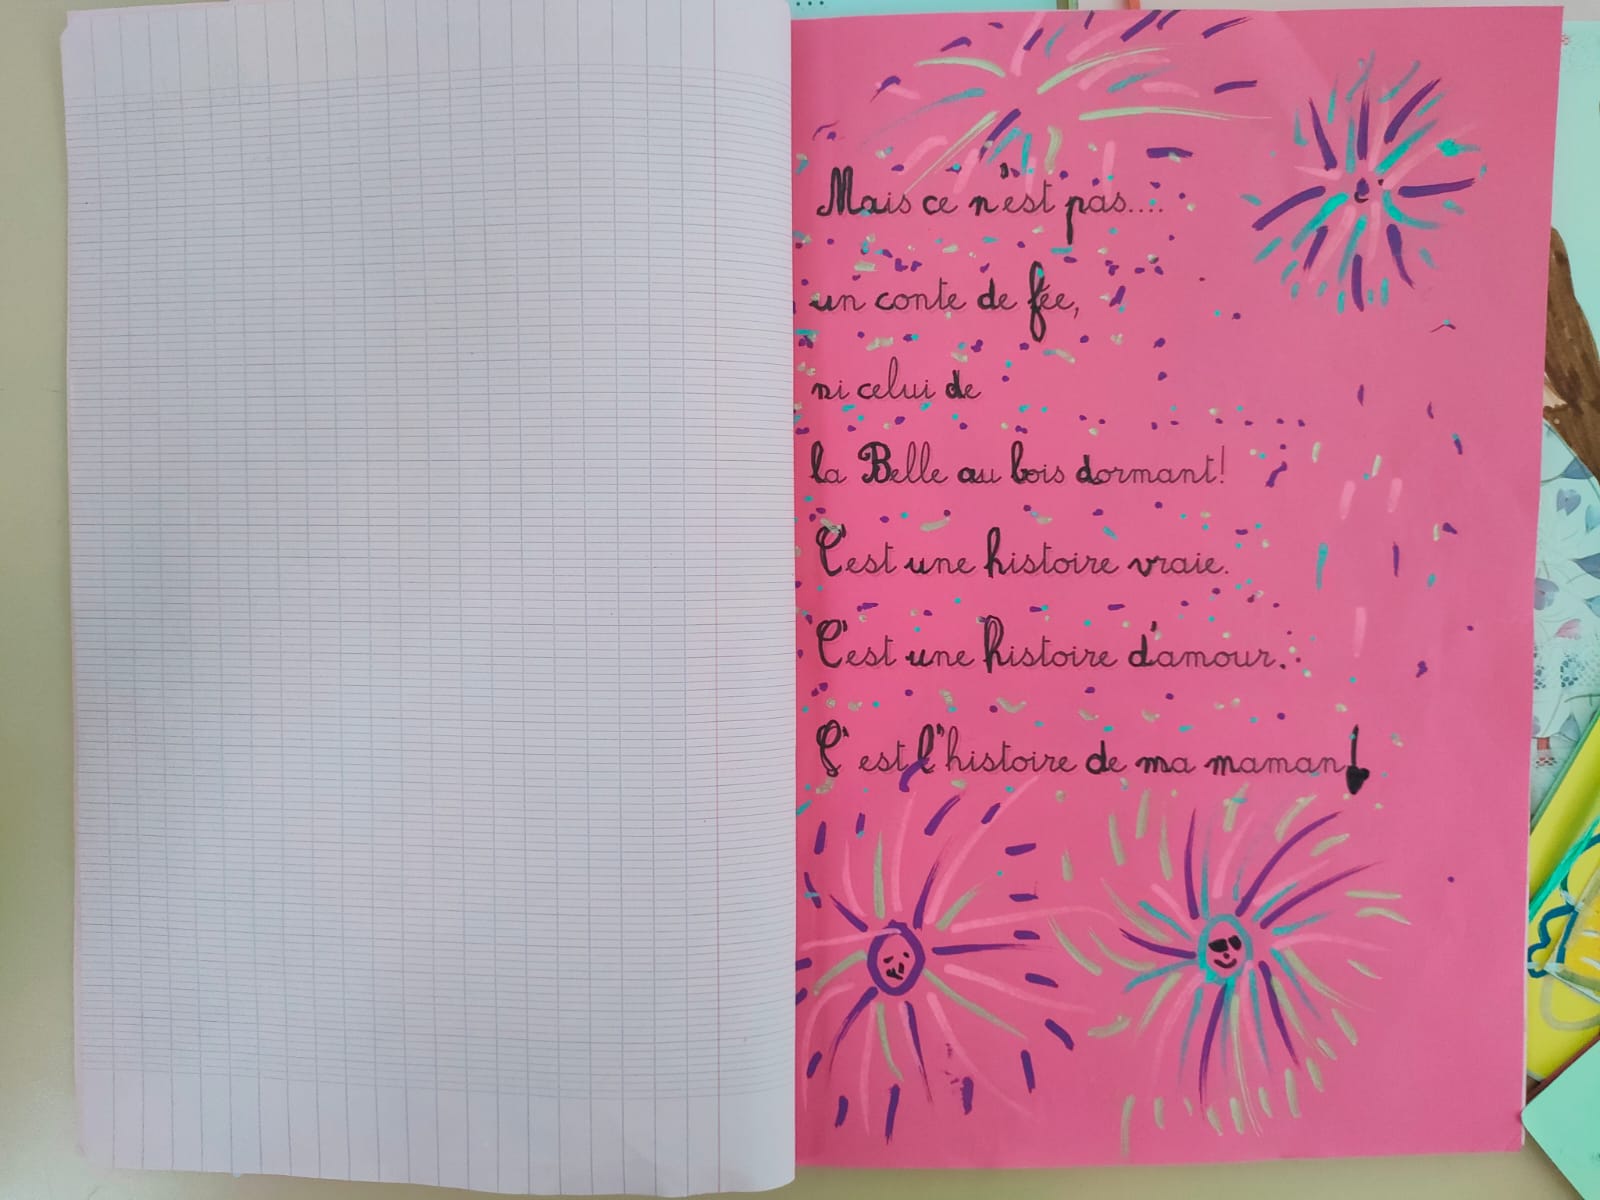 Mais ce n'est pas....
un conte de fée,
ni celui de
la Belle au bois dormant!
C'est une histoire vraie.
C'est une histoire d'amour.
C'est l'histoire de ma maman!